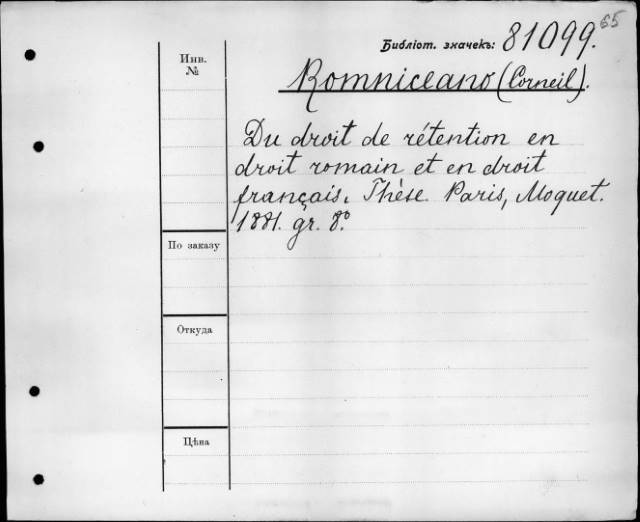 65
Библіот. значекъ: 81099.
Инв. №
Romniceano (Corneil).
Du droit de rétention en
droit romain et en droit
français. Thèse. Paris, Moquet.
1881. gr. 8°.
По заказу
Откуда
Цѣна